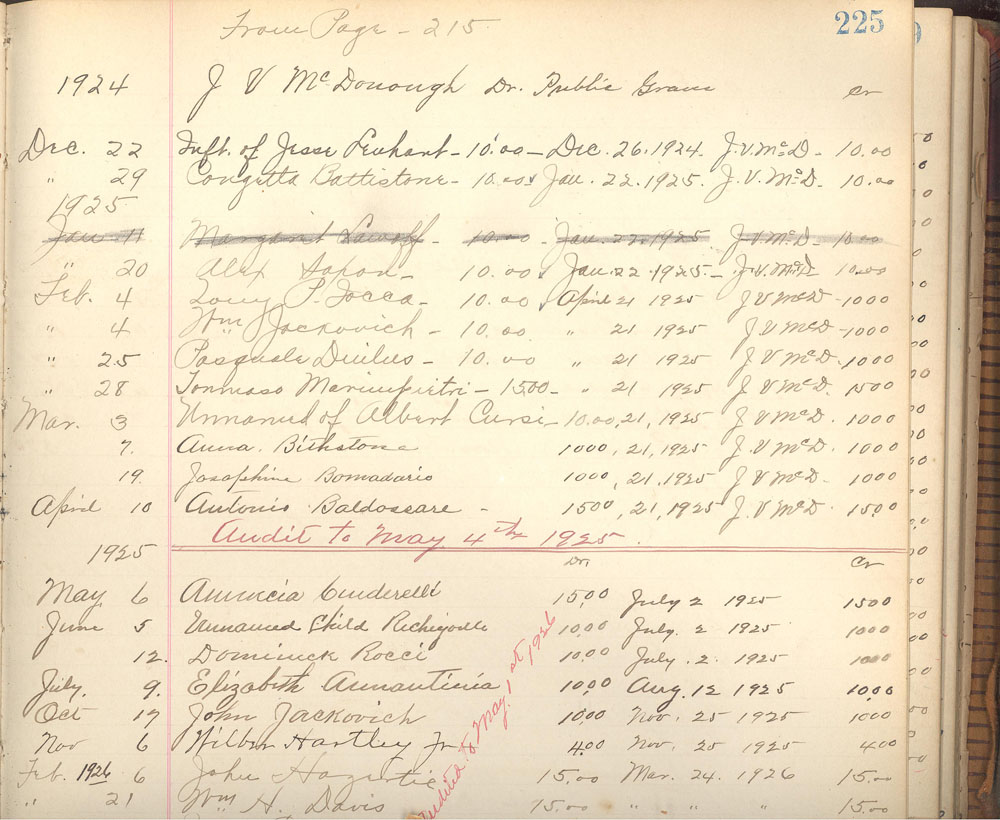 225
From Page - 215
1924 J V McDonough Dr. Public Grave Cr
Dec. 22 Inft. of Jesse Lenhart - 10.00 - Dec. 26. 1924. J. V. McD - 10.00
" 29 Congetta Battistone - 10.00 Jan. 22. 1925. J. V. McD. 10.00
1925
Jan 11 Margaret - 10.00 - Jan. 22. 1925 J V McD - 10.00
" 20 Alex Sapon - 10.00 Jan. 22. 1925. - J. V. McD 10.00
Feb. 4 Tocca - 10.00 April 21 1925 J V McD - 1000
" 4 Wm Jackovich - 10.00 " 21 1925 J. V McD - 1000
" 25 Pasquale - 10.00 " 21 1925 J. V McD. 1000
" 28 Tommaso - 1500 - " 21 1925 J V McD. 1500
Mar. 3 Unnamed of Albert Cursi - 10.00, 21, 1925 J V McD. 1000
7. Anna. Birkstone 1000, 21, 1925 J. V McD. 1000
19. Josephine Bomadario 1000, 21, 1925 J. V McD. 1000
April 10 Antonio Baldossare - 1500, 21, 1925 J. V McD. 1500
Audit to May 4th 1925.
1925 Dr. Cr
May 6 Cinderelli 15.00 July 2 1925 1500
June 5 Unnamed Child 10.00 July. 2 1925 1000
12. Dominick Rocci 10.00 July. 2. 1925 1000
July. 9. Elizabeth 10.00 Aug. 12 1925 10.00
Oct 17 John Jackovich 10.00 Nov. 25 1925 1000
Nov 6 Wilbur Hartley Jr. 4.00 Nov. 25 1925 400
Feb. 1926 6 John 15.00 Mar. 24. 1926 15.00
" 21 Wm H. Davis 15.00 " " " 15.00
Audited to May. 1st 1926